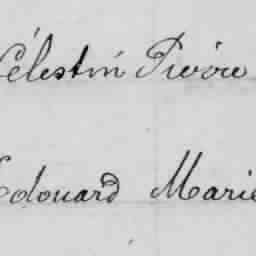 Célestin Pierre
Edouard Marie